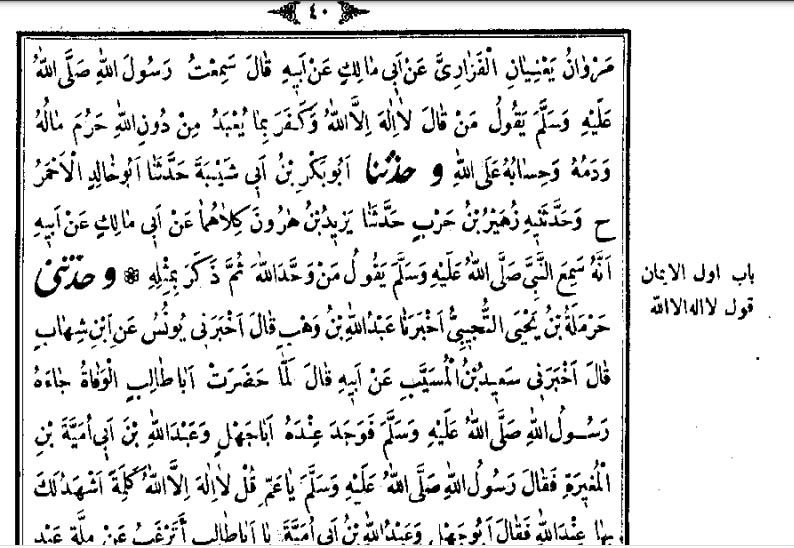 ٤٠
مَرْوَانُ يَعْنِيَانِ الْفَزَارِيَّ عَنْ اَبِي مَالِكٍ عَنْ اَبِيهِ قَالَ سَمِعْتُ رَسُولَ اللّٰهِ صَلَّى اللّٰهُ
عَلَيْهِ وَسَلَّمَ يَقُولُ مَنْ قَالَ لَا اِلٰهَ اِلَّا اللّٰهُ وَكَفَرَ بِمَا يُعْبَدُ مِنْ دُونِ اللّٰهِ حَرُمَ مَالُهُ
وَدَمُهُ وَحِسَابُهُ عَلَى اللّٰهِ و حدثنا اَبُو بَكْرِ بْنُ اَبِي شَيْبَةَ حَدَّثَنَا اَبُو خَالِدٍ الْاَحْمَرُ
ح وَحَدَّثَنِيهِ زُهَيْرُ بْنُ حَرْبٍ حَدَّثَنَا يَزِيدُ بْنُ هٰرُونَ كِلَاهُمَا عَنْ اَبِي مَالِكٍ عَنْ اَبِيهِ
اَنَّهُ سَمِعَ النَّبِيَّ صَلَّى اللّٰهُ عَلَيْهِ وَسَلَّمَ يَقُولُ مَنْ وَحَّدَ اللّٰهَ ثُمَّ ذَكَرَ بِمِثْلِهِ ❋ و حدثنى
حَرْمَلَةُ بْنُ يَحْيَى التُّجِيبِيُّ اَخْبَرَنَا عَبْدُ اللّٰهِ بْنُ وَهْبٍ قَالَ اَخْبَرَنِي يُونُسُ عَنِ ابْنِ شِهَابٍ
قَالَ اَخْبَرَنِي سَعِيدُ بْنُ الْمُسَيَّبِ عَنْ اَبِيهِ قَالَ لَمَّا حَضَرَتْ اَبَا طَالِبٍ الْوَفَاةُ جَاءَهُ
رَسُولُ اللّٰهِ صَلَّى اللّٰهُ عَلَيْهِ وَسَلَّمَ فَوَجَدَ عِنْدَهُ اَبَا جَهْلٍ وَعَبْدَ اللّٰهِ بْنَ اَبِي اُمَيَّةَ بْنِ
الْمُغِيرَةِ فَقَالَ رَسُولُ اللّٰهِ صَلَّى اللّٰهُ عَلَيْهِ وَسَلَّمَ يَا عَمِّ قُلْ لَا اِلٰهَ اِلَّا اللّٰهُ كَلِمَةً اَشْهَدُ لَكَ
بِهَا عِنْدَ اللّٰهِ فَقَالَ اَبُو جَهْلٍ وَعَبْدُ اللّٰهِ بْنُ اَبِي اُمَيَّةَ يَا اَبَا طَالِبٍ أَتَرْغَبُ عَنْ مِلَّةِ عَبْدِ
باب اول الايمان
قول لا اله الا الله